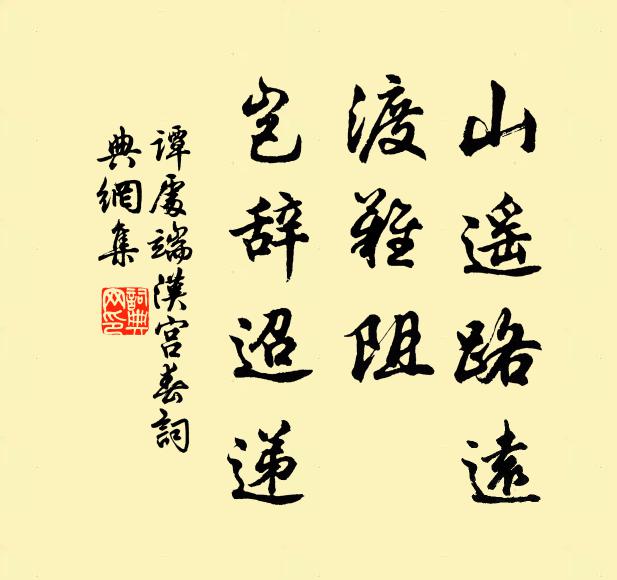 山遥路遠
渡難阻
岂辞迢递
譚處端漢宫春詞
典網集
詞典网印